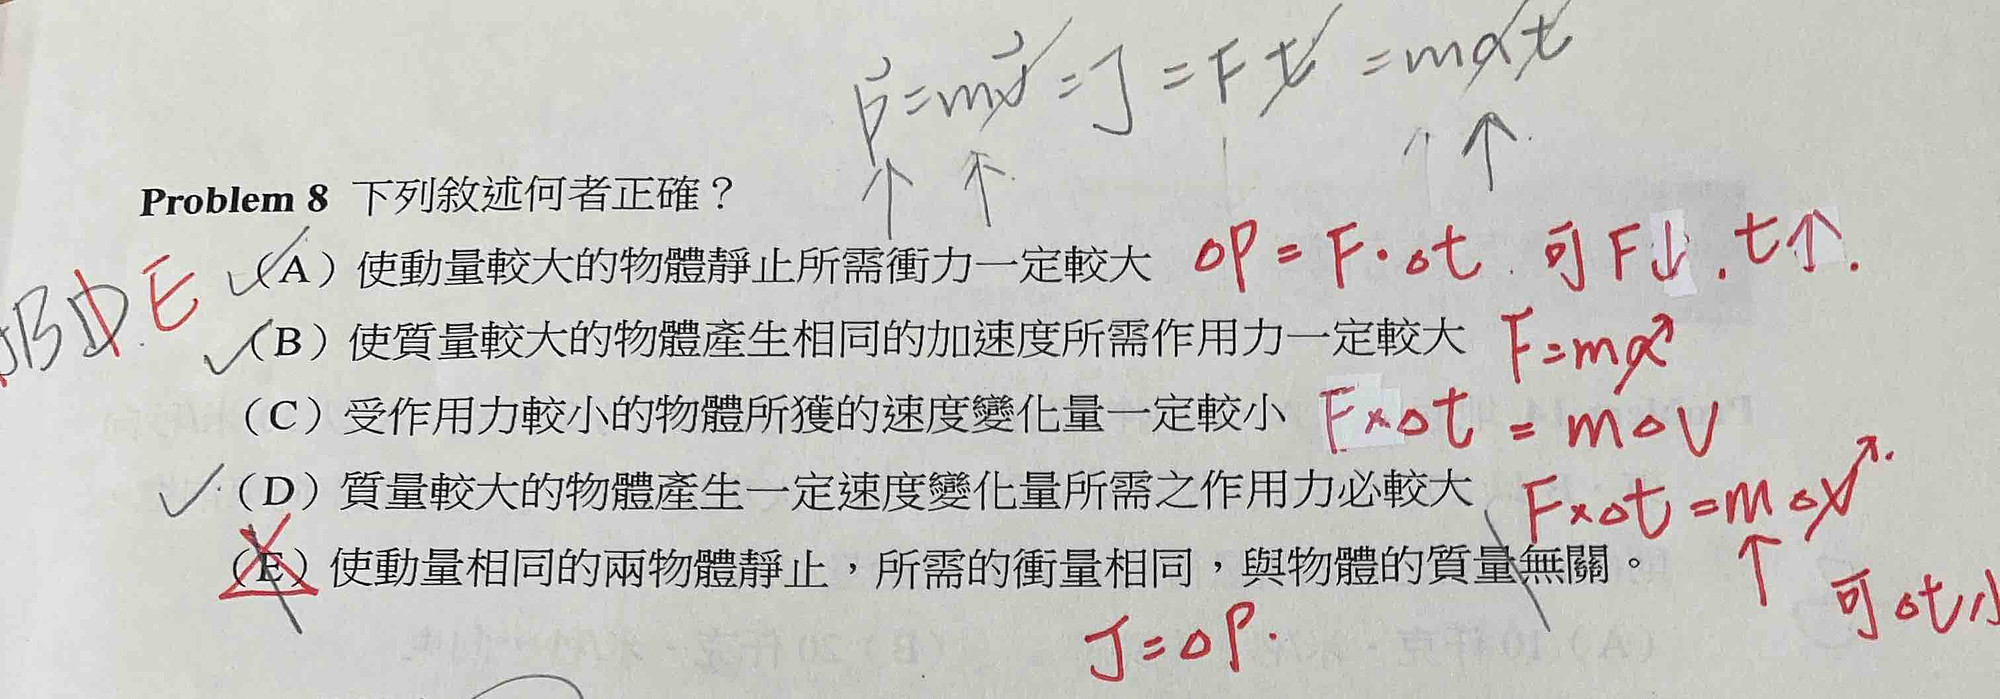 P = mv = J = Ft = mat
Problem 8 下列敘述何者正確？
（A）使動量較大的物體靜止所需衝力一定較大 ΔP = F·Δt. 可F↓. t↑.
BD E
（B）使質量較大的物體產生相同的加速度所需作用力一定較大 F=ma
（C）受作用力較小的物體所獲的速度變化量一定較小 F×Δt = mΔV
（D）質量較大的物體產生一定速度變化量所需之作用力必較大 F×Δt = mΔV
（E）使動量相同的兩物體靜止，所需的衝量相同，與物體的質量無關。
可Δt小
J=ΔP.